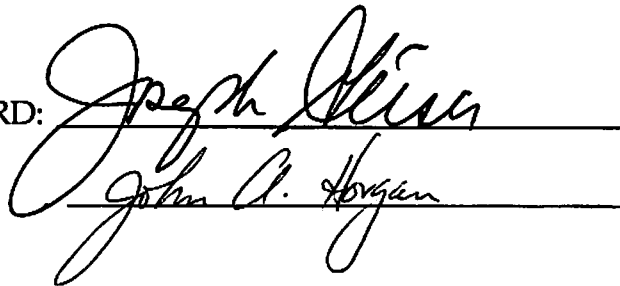 RD: Joseph Geiser
John A. Horgan